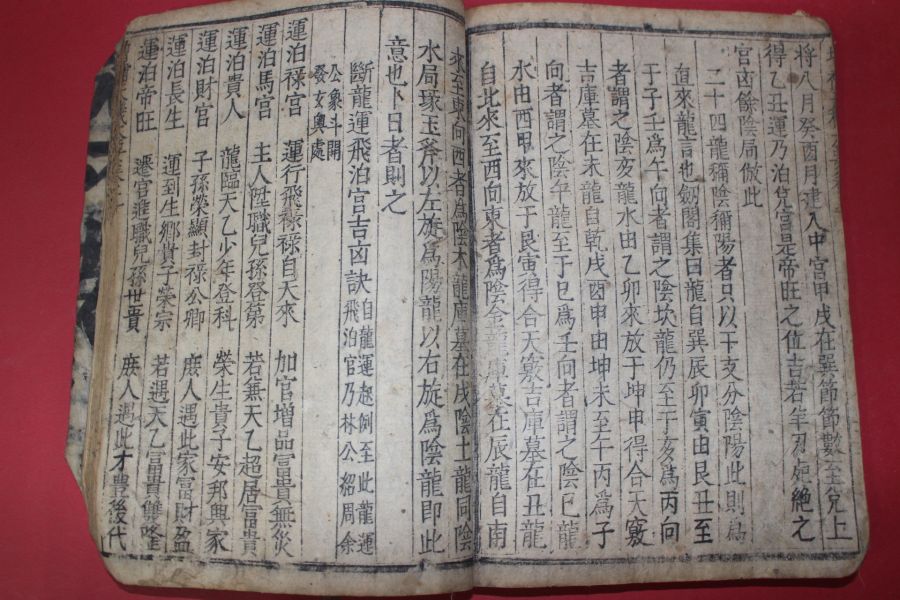 將八月癸酉月建入中宮甲戌在巽節節數至兌上
得乙丑運乃泊兌宮是帝旺之位吉若羊刃死絶之
宮凶餘陰局倣此
二十四龍彌陰彌陽者只以干支分陰陽此則為
直來龍言也劒閣集曰龍自巽辰卯寅由艮丑至
于子壬為午向者謂之陰坎龍仍至于亥為丙向
者謂之陰亥龍水由乙卯來放于坤申得合天竅
吉庫墓在未龍自乾戌酉申由坤未至午丙為子
向者謂之陰午龍至于巳為壬向者謂之陰巳龍
水由酉甲來放于艮寅得合天竅吉庫墓在丑龍
自此來至西向東者為陰金龍庫墓在辰龍自南
來至東向西者為陰木龍庫墓在戌陰土龍同陰
水局琢玉斧以左旋為陽龍以右旋為陰龍即此
意也卜日者則之
斷龍運飛泊宮吉凶訣自龍運起例至此龍運
飛泊官乃林公紹周余
公象斗開
發玄奧處
運泊祿宮 運行飛祿祿自天來 加官增品富貴無災
運泊馬宮 主人陞職兒孫登第 若無天乙超居富貴
運泊貴人 龍臨天乙少年登科 榮生貴子安邦興家
運泊財官 子孫榮顯封祿公卿 庶人遇此家富財盈
運泊長生 運到生鄉貴子榮宗 若遇天乙富貴雙隆
運泊帝旺 遷官進職兒孫世貴 庶人遇此才豊後代